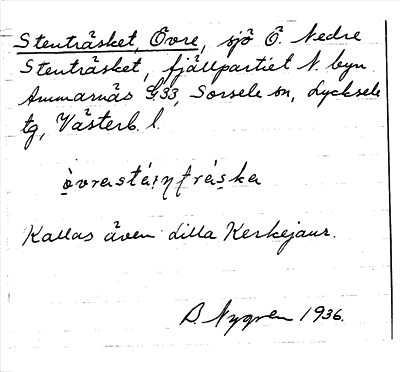 Stenträsket, Övre, sjö Ö. Nedre
Stenträsket, fjällpartiet N. byn
Ammarnäs G33, Sorsele sn, Lycksele
tg, Västerb. l.
òvrastáiŋtráska
Kallas även Lilla Kerkejaur.
B. Nygren 1936.